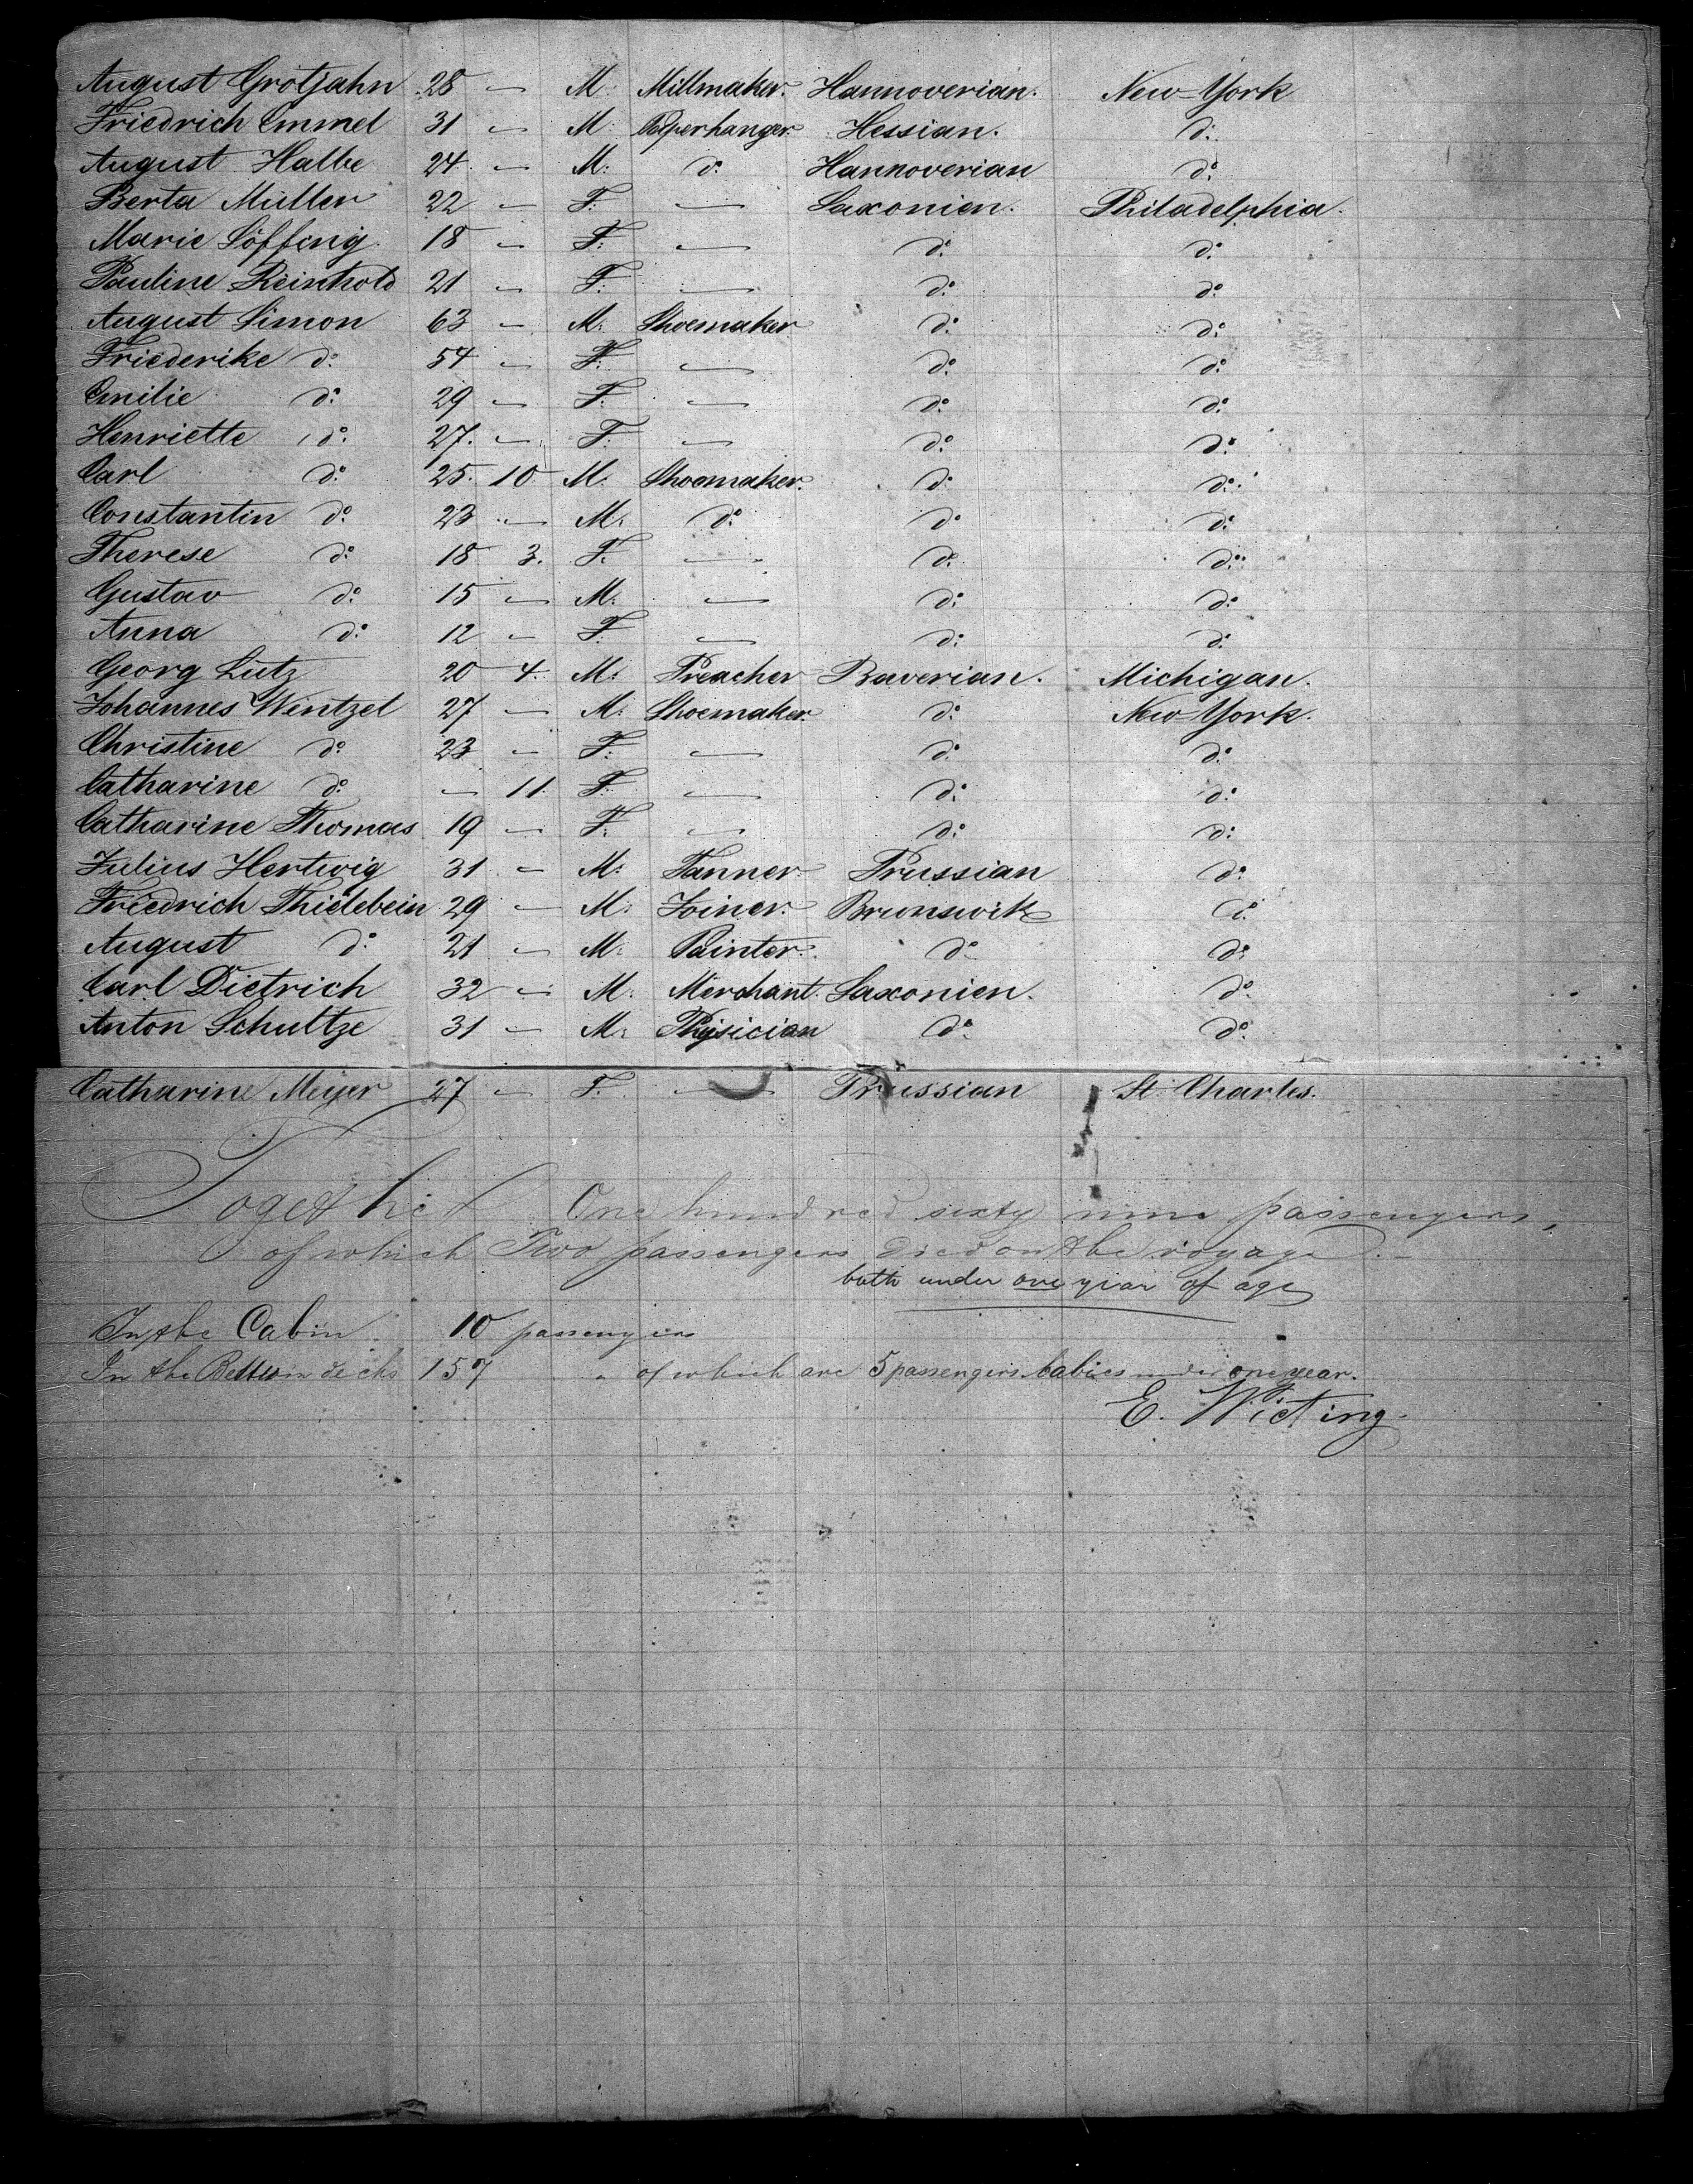 August Grotjahn 28 — M. Millmaker. Hannoverian. New-York
Friedrich Emmel 31 — M. Paperhanger. Hessian. do.
August Halbe 24 — M. do. Hannoverian do.
Berta Müller 22 — F. — Saxonien. Philadelphia.
Marie Löffing 18 — F. — do. do.
Pauline Reinhold 21 — F. — do. do.
August Simon 63 — M. Shoemaker do. do.
Friederike do. 54 — F. — do. do.
Emilie do. 29 — F. — do. do.
Henriette do. 27. — F. — do. do.
Carl do. 25. 10 M. Shoemaker. do. do.
Constantin do. 23 — M. do. do. do.
Therese do. 18 3. F. — do. do.
Gustav do. 15 — M. — do. do.
Anna do. 12 — F. — do. do.
Georg Lutz 20 4. M. Preacher Baverian. Michigan.
Johannes Wentzel 27 — M. Shoemaker. do. New-York.
Christine do. 23 — F. — do. do.
Catharine do. — 11. F. — do. do.
Catharine Thomas 19 — F. — do. do.
Julius Hertwig 31 — M. Tanner. Prussian do.
Friedrich Thielebein 29 — M. Joiner. Brunswik do.
August do. 21 — M. Painter. do. do.
Carl Dietrich 32 — M. Merchant. Saxonien. do.
Anton Schultze 31 — M. Physician do. do.
Catharine Meijer 27 — F. — Prussian St. Charles.
Together One hundred sixty nine passengers,
of which Two passengers died on the voyage. —
both under one year of age
In the Cabin 10 passengers
In the Bettwin decks 157 " of which are 5 passengers babies under one year.
E. Wieting.